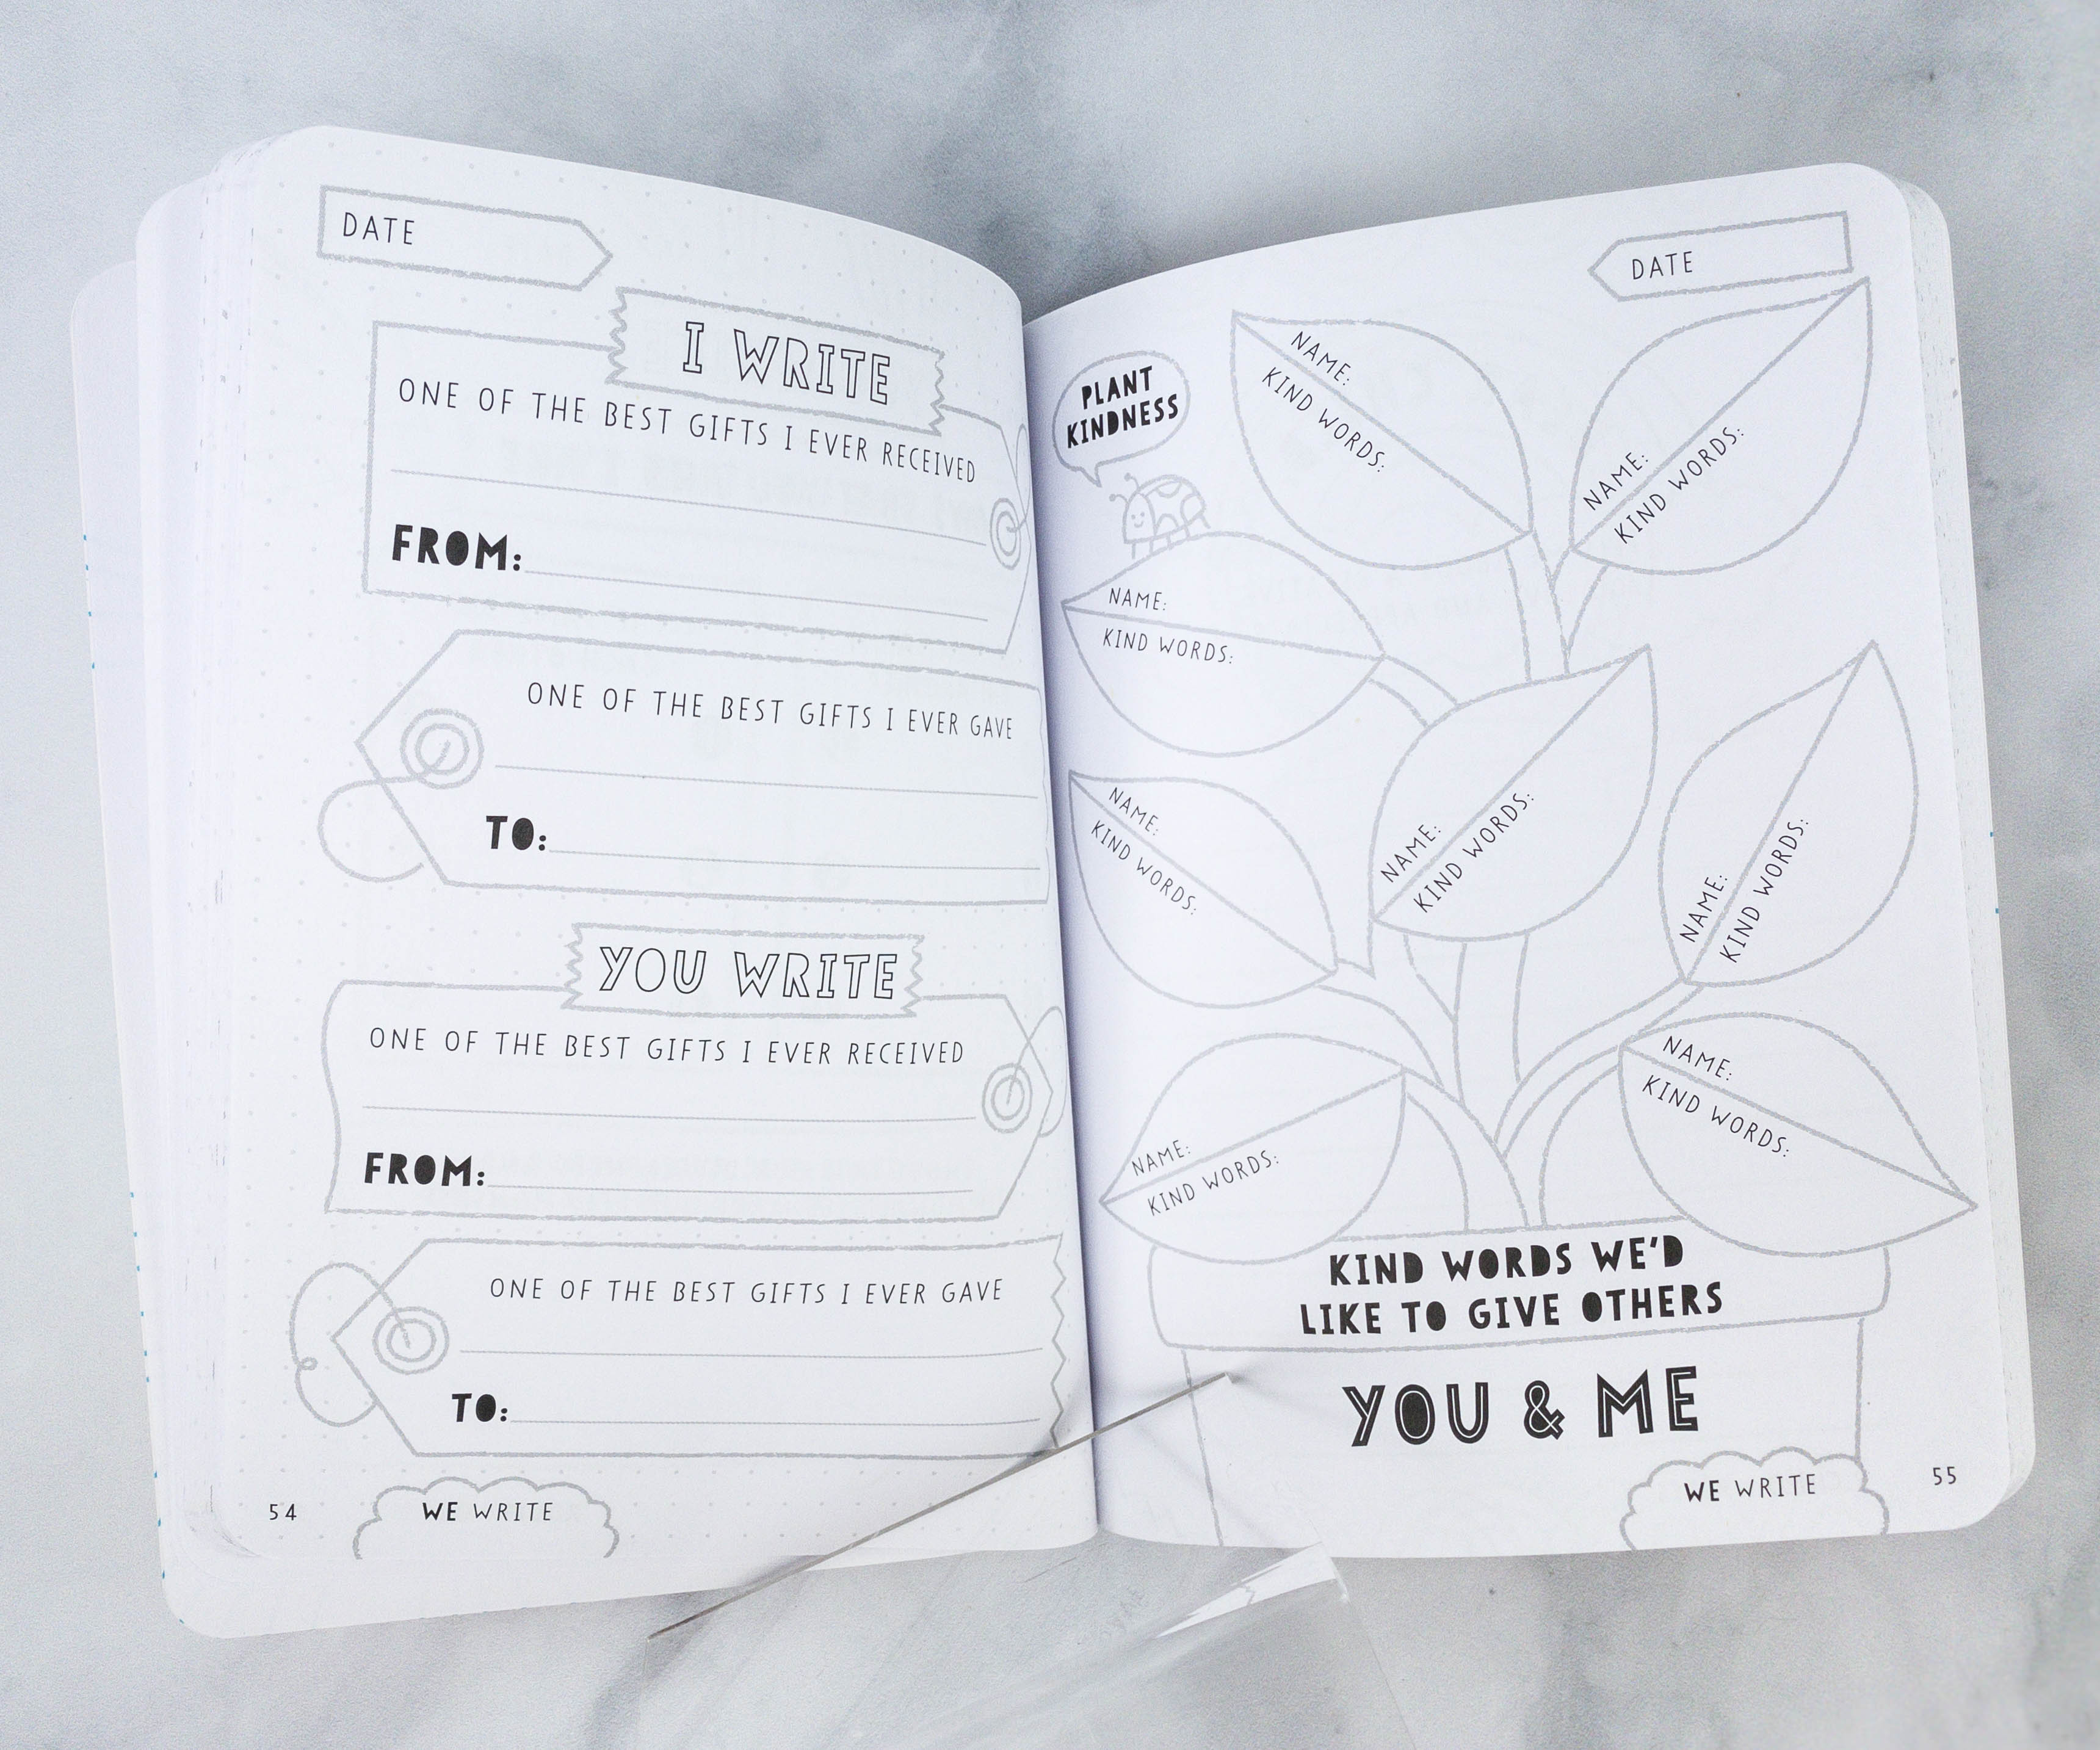 DATE
I WRITE
ONE OF THE BEST GIFTS I EVER RECEIVED
FROM:
ONE OF THE BEST GIFTS I EVER GAVE
TO:
YOU WRITE
ONE OF THE BEST GIFTS I EVER RECEIVED
FROM:
ONE OF THE BEST GIFTS I EVER GAVE
TO:
54
WE WRITE
DATE
PLANT
KINDNESS
NAME:
KIND WORDS:
NAME:
KIND WORDS:
NAME:
KIND WORDS:
NAME:
KIND WORDS:
NAME:
KIND WORDS:
NAME:
KIND WORDS:
NAME:
KIND WORDS:
NAME:
KIND WORDS:
KIND WORDS WE'D
LIKE TO GIVE OTHERS
YOU & ME
WE WRITE
55